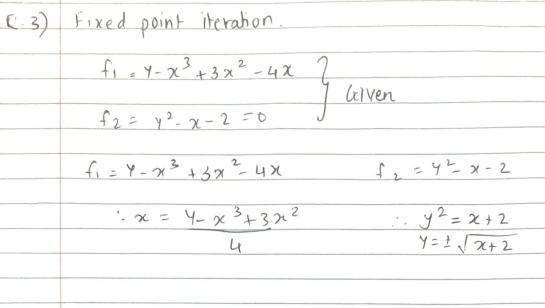 Q.3) Fixed point iteration.
f₁ = y - x³ + 3x² - 4x
f₂ = y² - x - 2 = 0
} Given
f₁ = y - x³ + 3x² - 4x    f₂ = y² - x - 2
∴ x = (y - x³ + 3x²)/4    ∴ y² = x + 2
y = ± √(x + 2)